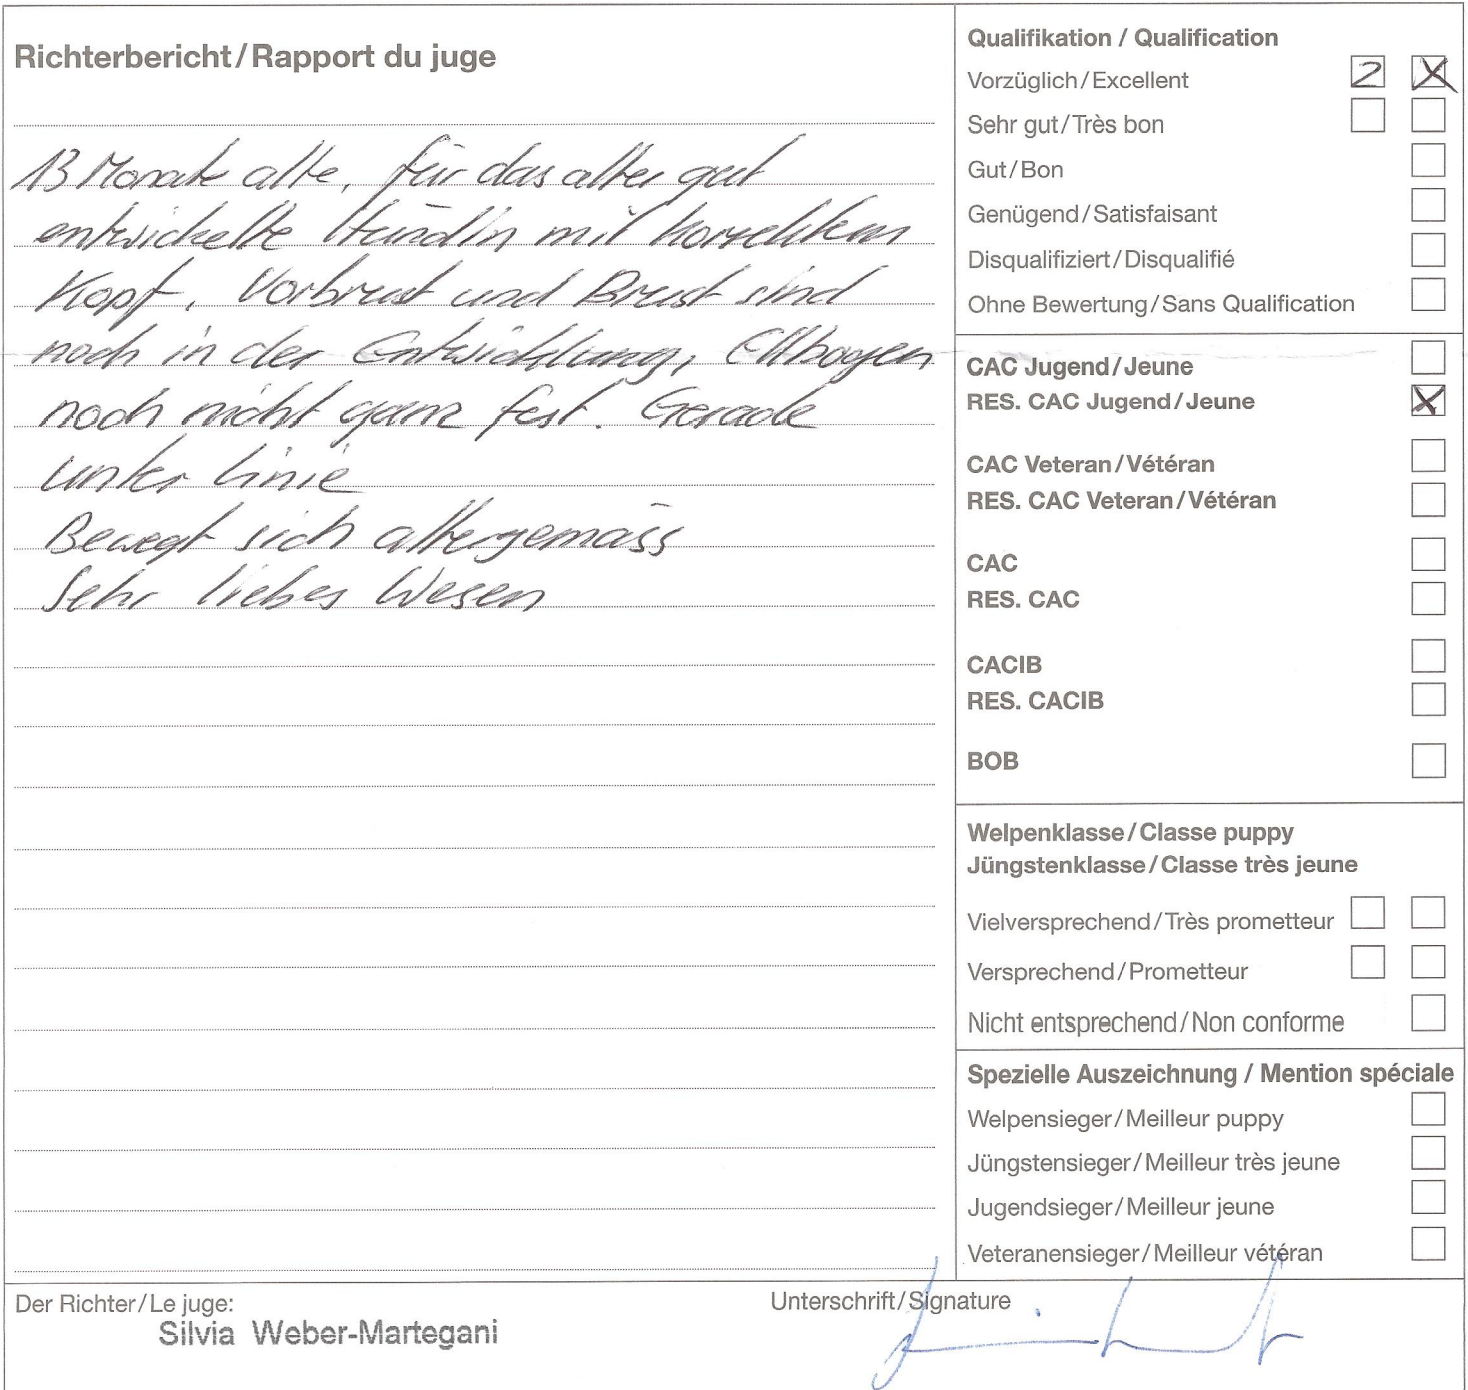 Richterbericht/Rapport du juge
13 Monate alte, für das alter gut
entwickelte Hündin mit korrektem
Kopf. Vorbrust und Brust sind
noch in der Entwicklung, Ellbogen
noch nicht ganz fest. Gerade
unter linie
Bewegt sich altergemäss
Sehr liebes Wesen
Qualifikation / Qualification
Vorzüglich/Excellent 2 X
Sehr gut/Très bon
Gut/Bon
Genügend/Satisfaisant
Disqualifiziert/Disqualifié
Ohne Bewertung/Sans Qualification
CAC Jugend/Jeune
RES. CAC Jugend/Jeune X
CAC Veteran/Vétéran
RES. CAC Veteran/Vétéran
CAC
RES. CAC
CACIB
RES. CACIB
BOB
Welpenklasse/Classe puppy
Jüngstenklasse/Classe très jeune
Vielversprechend/Très prometteur
Versprechend/Prometteur
Nicht entsprechend/Non conforme
Spezielle Auszeichnung / Mention spéciale
Welpensieger/Meilleur puppy
Jüngstensieger/Meilleur très jeune
Jugendsieger/Meilleur jeune
Veteranensieger/Meilleur vétéran
Der Richter/Le juge:
Silvia Weber-Martegani
Unterschrift/Signature